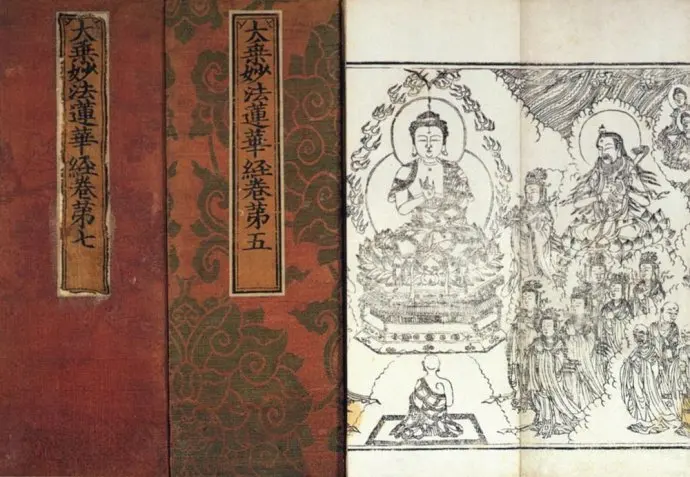 大乗妙法蓮華経卷第七
大乗妙法蓮華経卷第五